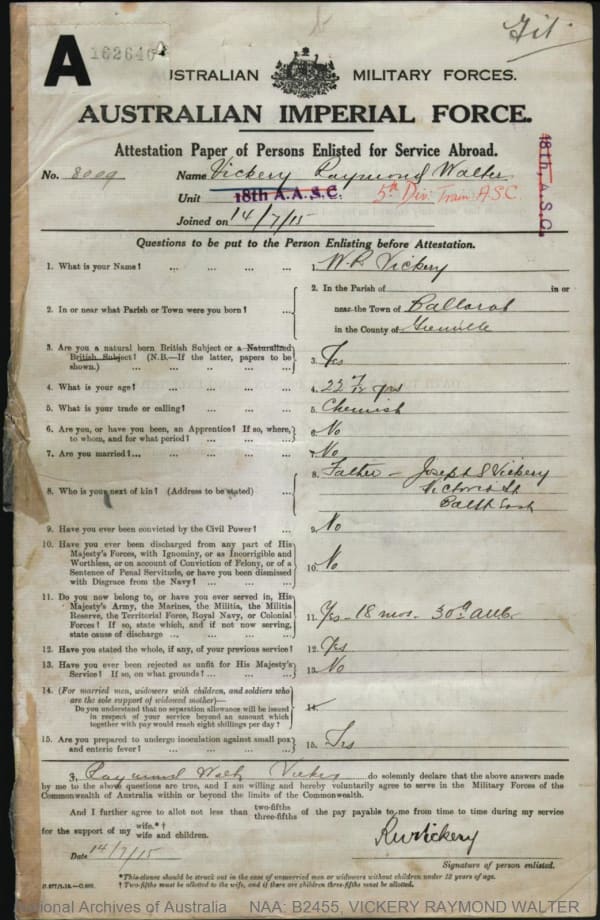 Fit
A
162640
AUSTRALIAN MILITARY FORCES.
AUSTRALIAN IMPERIAL FORCE.
Attestation Paper of Persons Enlisted for Service Abroad.
18th, A.S.C.
No. 8009 Name Vickery Raymond Walter
Unit 18th A.A.S.C. 5th Div: Train A.S.C
Joined on 14/7/15
Questions to be put to the Person Enlisting before Attestation.
1. What is your Name? ... ... ... ... 1. W.R. Vickery
2. In or near what Parish or Town were you born? ... 2. In the Parish of in or
near the Town of Ballarat
in the County of Grenville
3. Are you a natural born British Subject or a Naturalized
British Subject? (N.B.—If the latter, papers to be
shown.) ... ... ... ... ... 3. Yes
4. What is your age? ... ... ... ... 4. 22 7/12 yrs
5. What is your trade or calling? ... ... ... 5. Chemist
6. Are you, or have you been, an Apprentice? If so, where,
to whom, and for what period? ... ... ... 6. No
7. Are you married?... ... ... ... ... 7. No
8. Who is your next of kin? (Address to be stated) ... 8. Father – Joseph S Vickery
Victoria St
Ballt East
9. Have you ever been convicted by the Civil Power? ... 9. No
10. Have you ever been discharged from any part of His
Majesty's Forces, with Ignominy, or as Incorrigible and
Worthless, or on account of Conviction of Felony, or of a
Sentence of Penal Servitude, or have you been dismissed
with Disgrace from the Navy? ... ... ... 10. No
11. Do you now belong to, or have you ever served in, His
Majesty's Army, the Marines, the Militia, the Militia
Reserve, the Territorial Force, Royal Navy, or Colonial
Forces? If so, state which, and if not now serving,
state cause of discharge ... ... ... ... 11. Yes – 18 mos.
12. Have you stated the whole, if any, of your previous service? 12. Yes
13. Have you ever been rejected as unfit for His Majesty's
Service? If so, on what grounds? ... ... ... 13. No
14. (For married men, widowers with children, and soldiers who
are the sole support of widowed mother)—
Do you understand that no separation allowance will be issued
in respect of your service beyond an amount which
together with pay would reach eight shillings per day? 14.
15. Are you prepared to undergo inoculation against small pox
and enteric fever? ... ... ... ... 15. Yes
I, Raymond Walter Vickery do solemnly declare that the above answers made
by me to the above questions are true, and I am willing and hereby voluntarily agree to serve in the Military Forces of the
Commonwealth of Australia within or beyond the limits of the Commonwealth.
And I further agree to allot not less than two-fifths three-fifths of the pay payable to me from time to time during my service
for the support of my wife.*† wife and children.
R W Vickery
Date 14/7/15
Signature of person enlisted.
*This clause should be struck out in the case of unmarried men or widowers without children under 18 years of age.
† Two-fifths must be allotted to the wife, and if there are children three-fifths must be allotted.
National Archives of Australia NAA: B2455, VICKERY RAYMOND WALTER